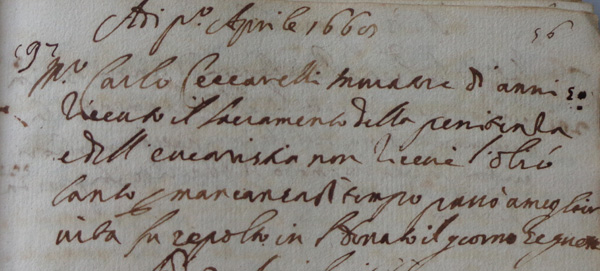 Adi p.º Aprile 1660
56
197
M.º Carlo Ceccarelli muratore di anni 50
riceuto il sacramento della penitenza
e dell eucaristia non riceuè l'olio
santo p mancanza di tempo passò a meglior
uita fu sepolto in Donato il giorno seguente